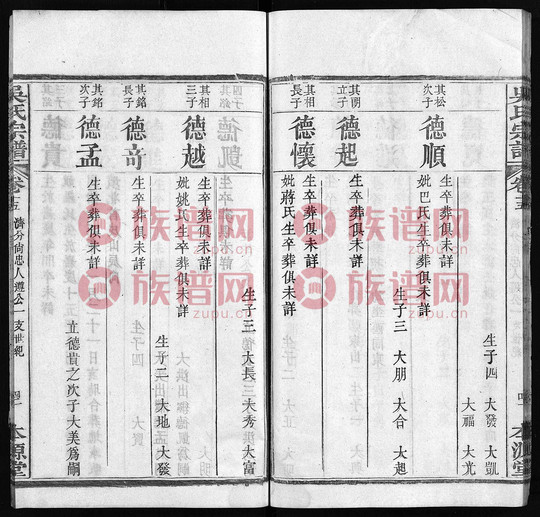 吳氏宗譜
卷十五
本源堂
其松次子
德順
生卒葬俱未詳
妣巴氏生卒葬俱未詳
生子四 大發 大凱
大福 大光
其明立子
德起
生卒葬俱未詳
生子三 大朋 大合 大起
其相長子
德懷
生卒葬俱未詳
妣蔣氏生卒葬俱未詳
其相三子
德越
生卒葬俱未詳
妣姚氏生卒葬俱未詳
生子三 大長 大秀 大富
其銘長子
德奇
生卒葬俱未詳
生子二 大地 大發
其銘次子
德孟
生卒葬俱未詳
立德貴之次子大美爲嗣
吳氏宗譜
卷十五
濟分尙忠人遵公一支世紀
本源堂
族谱网
zupu.cn
族谱网
zupu.cn
族谱网
zupu.cn
族谱网
zupu.cn